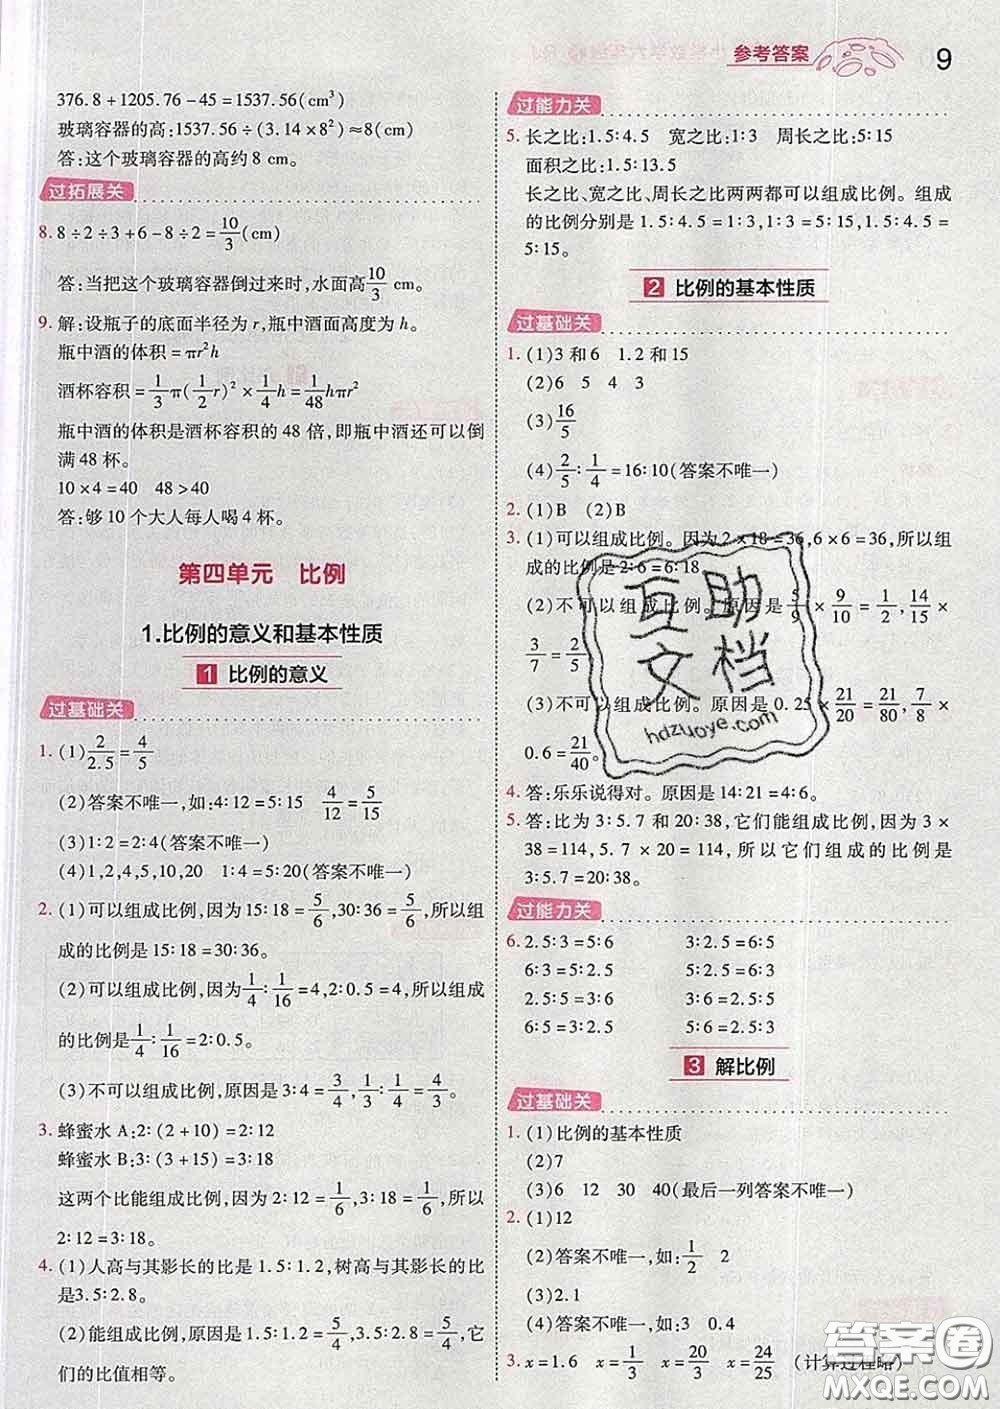 参考答案
9
376.8+1205.76-45=1537.56(cm³)
玻璃容器的高:1537.56÷(3.14×8²)≈8(cm)
答:这个玻璃容器的高约8 cm。
过拓展关
8. 8÷2÷3+6-8÷2=10/3(cm)
答:当把这个玻璃容器倒过来时,水面高10/3 cm。
9. 解:设瓶子的底面半径为r,瓶中酒面高度为h。
瓶中酒的体积=πr²h
酒杯容积=1/3π(1/2r)²×1/4h=1/48hπr²
瓶中酒的体积是酒杯容积的48倍,即瓶中酒还可以倒
满48杯。
10×4=40 48>40
答:够10个大人每人喝4杯。
第四单元 比例
1.比例的意义和基本性质
1 比例的意义
过基础关
1. (1)2/2.5=4/5
(2)答案不唯一,如:4∶12=5∶15 4/12=5/15
(3)1∶2=2∶4(答案不唯一)
(4)1,2,4,5,10,20 1∶4=5∶20(答案不唯一)
2. (1)可以组成比例,因为15∶18=5/6,30∶36=5/6,所以组
成的比例是15∶18=30∶36。
(2)可以组成比例,因为1/4∶1/16=4,2∶0.5=4,所以组成
的比例是1/4∶1/16=2∶0.5。
(3)不可以组成比例,原因是3∶4=3/4,1/3∶1/4=4/3。
3. 蜂蜜水A:2∶(2+10)=2∶12
蜂蜜水B:3∶(3+15)=3∶18
这两个比能组成比例,因为2∶12=1/6,3∶18=1/6,所以
2∶12=3∶18。
4. (1)人高与其影长的比是1.5∶1.2,树高与其影长的比
是3.5∶2.8。
(2)能组成比例,原因是1.5∶1.2=5/4,3.5∶2.8=5/4,它
们的比值相等。
过能力关
5. 长之比:1.5∶4.5 宽之比:1∶3 周长之比:5∶15
面积之比:1.5∶13.5
长之比、宽之比、周长之比两两都可以组成比例。组成
的比例分别是1.5∶4.5=1∶3,1∶3=5∶15,1.5∶4.5=
5∶15。
2 比例的基本性质
过基础关
1. (1)3和6 1.2和15
(2)6 5 4 3
(3)16/5
(4)2/5∶1/4=16∶10(答案不唯一)
2. (1)B (2)B
3. (1)可以组成比例。因为2×18=36,6×6=36,所以组
成的比例是2∶6=6∶18。
(2)不可以组成比例。原因是5/9×9/10=1/2,14/15×
3/7=2/5。
(3)不可以组成比例。原因是0.25×21/20=21/80,7/8×
0.6=21/40。
4. 答:乐乐说得对。原因是14∶21=4∶6。
5. 答:比为3∶5.7和20∶38,它们能组成比例。因为3×
38=114,5.7×20=114,所以它们组成的比例是
3∶5.7=20∶38。
过能力关
6. 2.5∶3=5∶6 3∶2.5=6∶5
6∶3=5∶2.5 5∶2.5=6∶3
2.5∶5=3∶6 3∶6=2.5∶5
6∶5=3∶2.5 5∶6=2.5∶3
3 解比例
过基础关
1. (1)比例的基本性质
(2)7
(3)6 12 30 40(最后一列答案不唯一)
2. (1)12
(2)答案不唯一,如:1/2 2
(3)2.1
(4)答案不唯一,如:3 0.4
3. x=1.6 x=1/3 x=20/3 x=24/25 (计算过程略)
互助
文档
hdzuoye.com
答案圈
MXQE.COM